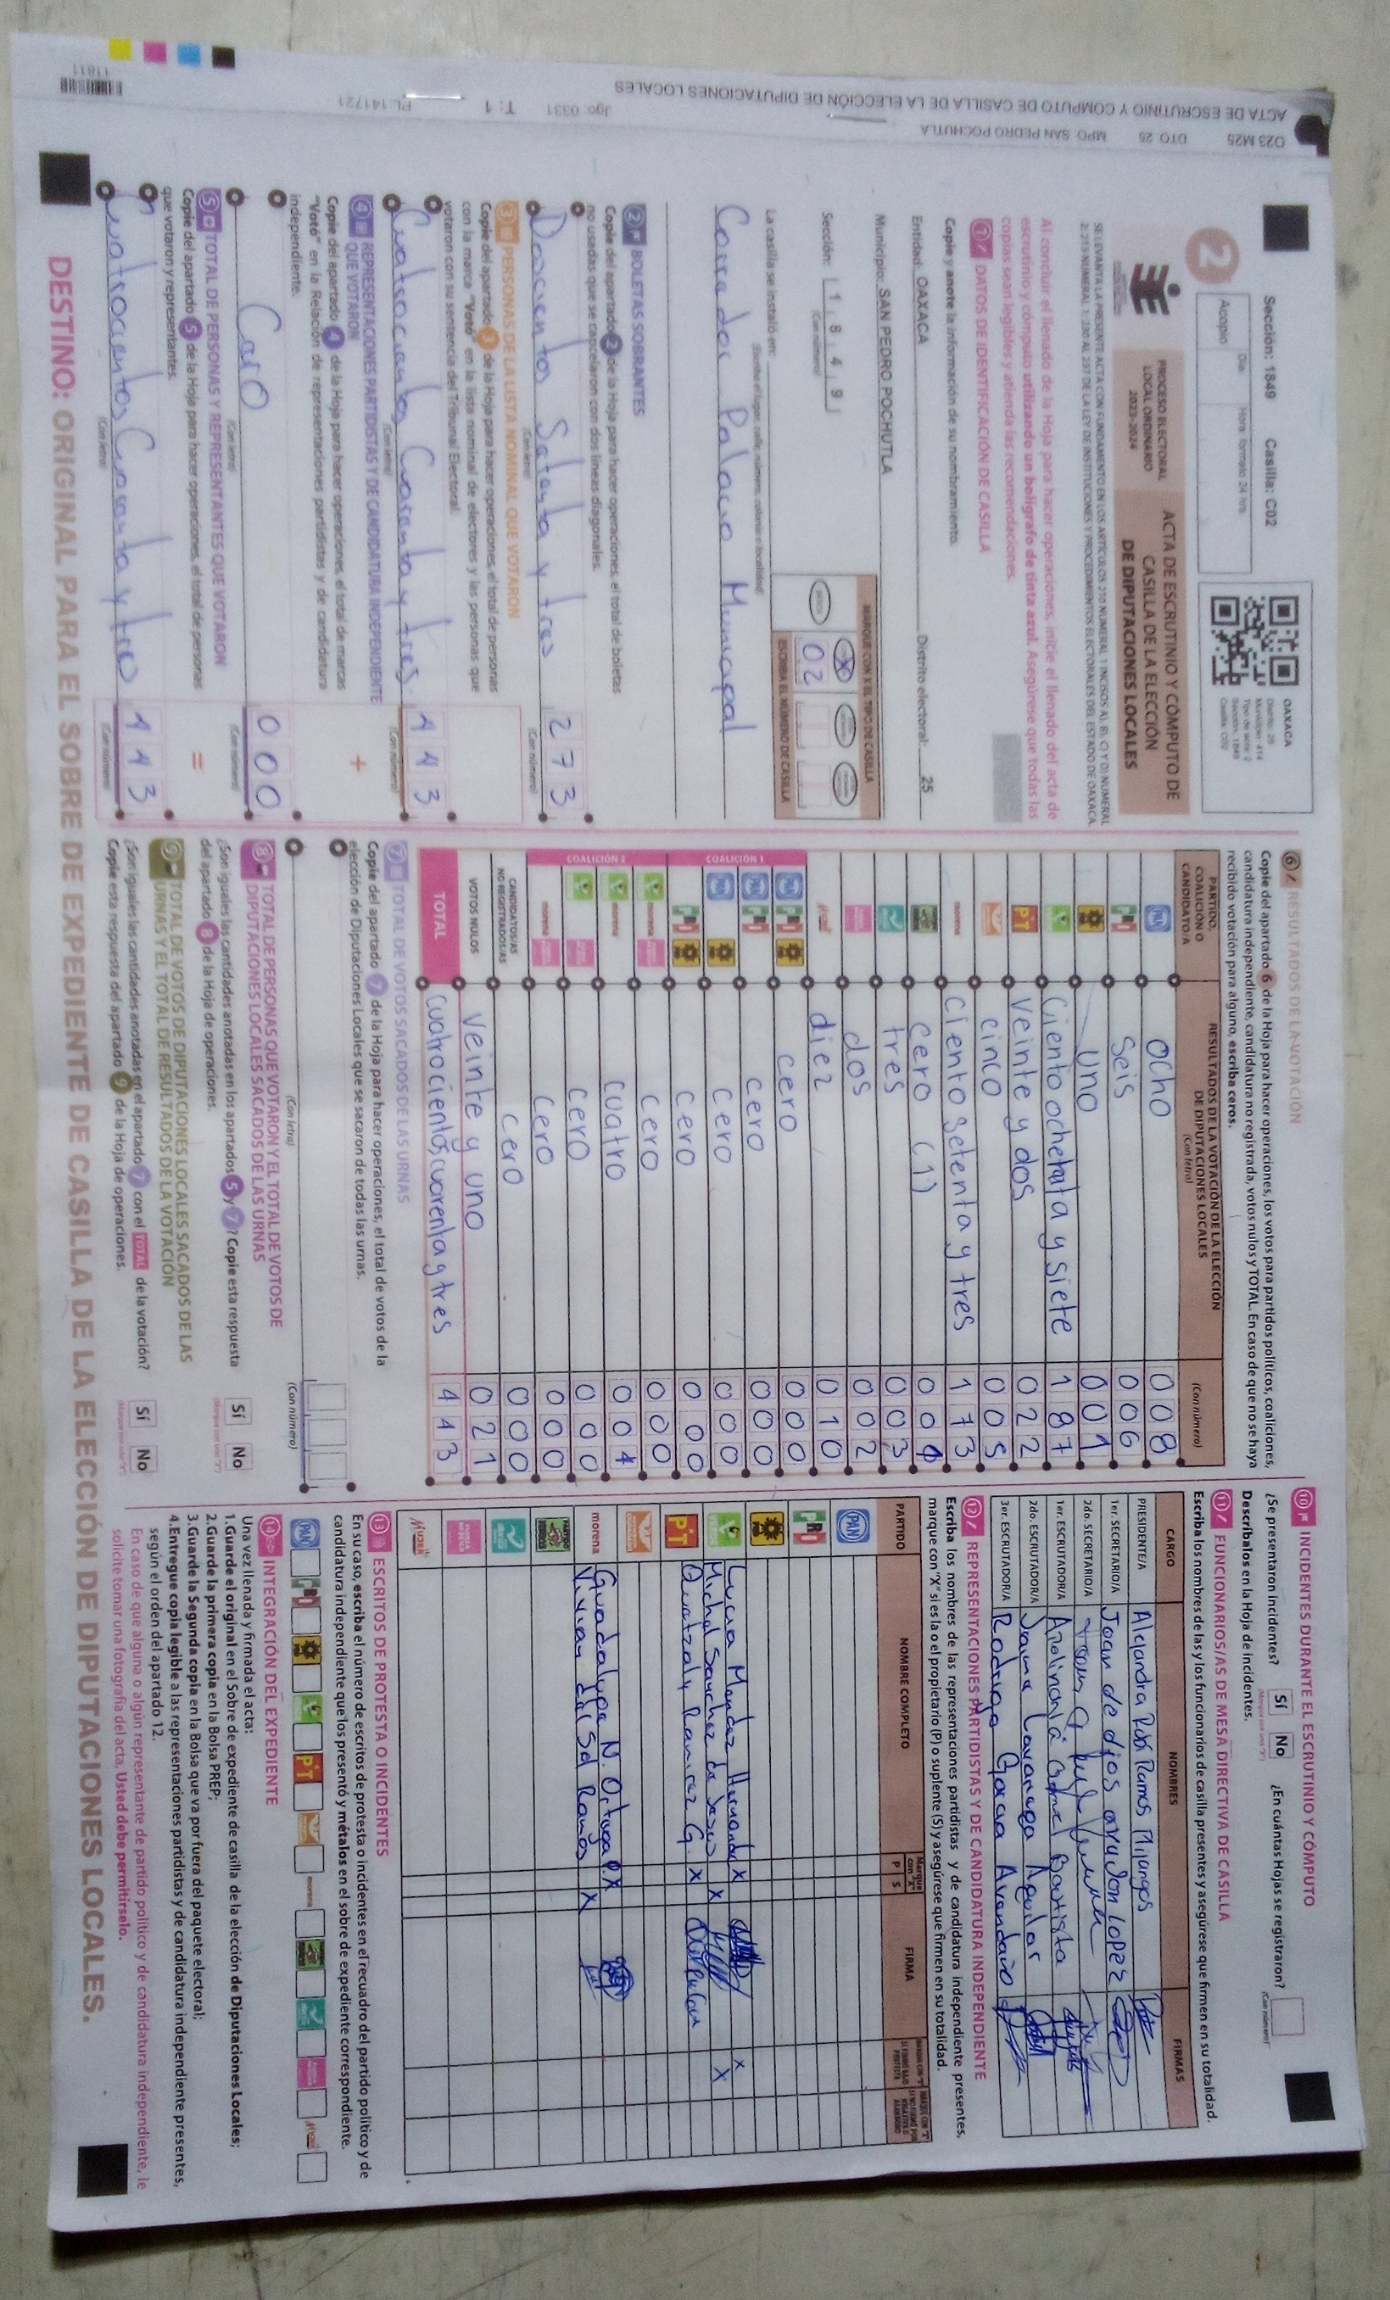 ACTA DE ESCRUTINIO Y CÓMPUTO DE CASILLA DE LA ELECCIÓN DE DIPUTACIONES LOCALES
023 M25 DTO. 25 MPO. SAN PEDRO POCHUTLA
Jgo. 0331 T: 1 PL 141721
11811
Sección: 1849 Casilla: C02
Día Hora formato 24 hrs
2
Acopio
OAXACA
PROCESO ELECTORAL
LOCAL ORDINARIO
2023-2024
ACTA DE ESCRUTINIO Y CÓMPUTO DE
CASILLA DE LA ELECCIÓN
DE DIPUTACIONES LOCALES
Al concluir el llenado de la Hoja para hacer operaciones, inicie el llenado del acta de
escrutinio y cómputo utilizando un bolígrafo de tinta azul. Asegúrese que todas las
copias sean legibles y atienda las recomendaciones.
1 DATOS DE IDENTIFICACIÓN DE CASILLA
Copie y anote la información de su nombramiento.
Entidad: OAXACA Distrito electoral: 25
Municipio: SAN PEDRO POCHUTLA
Sección: 1 8 4 9
(Con número)
MARQUE CON X EL TIPO DE CASILLA
X
02
ESCRIBA EL NÚMERO DE CASILLA
La casilla se instaló en:
Corredor Palacio Municipal
2 BOLETAS SOBRANTES
Copie del apartado 2 de la Hoja para hacer operaciones, el total de boletas
no usadas que se cancelaron con dos líneas diagonales.
Doscientos Setenta y tres 273
(Con letra) (Con número)
3 PERSONAS DE LA LISTA NOMINAL QUE VOTARON
Copie del apartado 3 de la Hoja para hacer operaciones, el total de personas
con la marca "Votó" en la lista nominal de electores y las personas que
votaron con su sentencia del Tribunal Electoral.
Cuatrocientos Cuarenta y tres 443
(Con letra) (Con número)
4 REPRESENTACIONES PARTIDISTAS Y DE CANDIDATURA INDEPENDIENTE
QUE VOTARON
+
Copie del apartado 4 de la Hoja para hacer operaciones, el total de marcas
"Votó" en la Relación de representaciones partidistas y de candidatura
independiente.
Cero 000
(Con letra) (Con número)
5 TOTAL DE PERSONAS Y REPRESENTANTES QUE VOTARON
=
Copie del apartado 5 de la Hoja para hacer operaciones, el total de personas
que votaron y representantes.
443
(Con letra) (Con número)
6 RESULTADOS DE LA VOTACIÓN
Copie del apartado 6 de la Hoja para hacer operaciones, los votos para partidos políticos, coaliciones,
candidatura independiente, candidatura no registrada, votos nulos y TOTAL. En caso de que no se haya
recibido votación para alguno, escriba ceros.
PARTIDO,
COALICIÓN O
CANDIDATO/A
RESULTADOS DE LA VOTACIÓN DE LA ELECCIÓN
DE DIPUTACIONES LOCALES
(Con letra)
(Con número)
PAN ocho 008
PRI Seis 006
uno 001
Ciento ochenta y siete 187
PT veinte y dos 022
cinco 005
morena ciento setenta y tres 173
cero (1)
tres 003
dos 002
diez 010
COALICIÓN 1
cero 000
cero 000
cero 000
cero 000
COALICIÓN 2
cero 000
cuatro 004
cero 000
cero 000
CANDIDATOS/AS
NO REGISTRADOS/AS cero 000
VOTOS NULOS veinte y uno 021
TOTAL cuatrocientos cuarenta y tres 443
7 TOTAL DE VOTOS SACADOS DE LAS URNAS
Copie del apartado 7 de la Hoja para hacer operaciones, el total de votos de la
elección de Diputaciones Locales que se sacaron de todas las urnas.
(Con letra) (Con número)
8 TOTAL DE PERSONAS QUE VOTARON Y EL TOTAL DE VOTOS DE
DIPUTACIONES LOCALES SACADOS DE LAS URNAS
¿Son iguales las cantidades anotadas en los apartados 5 y 7? Copie esta respuesta
del apartado 8 de la Hoja de operaciones.
Sí No
9 TOTAL DE VOTOS DE DIPUTACIONES LOCALES SACADOS DE LAS
URNAS Y EL TOTAL DE RESULTADOS DE LA VOTACIÓN
¿Son iguales las cantidades anotadas en el apartado 7 con el TOTAL de la votación?
Copie esta respuesta del apartado 9 de la Hoja de operaciones.
Sí No
10 INCIDENTES DURANTE EL ESCRUTINIO Y CÓMPUTO
¿Se presentaron incidentes? Sí No ¿En cuántas Hojas se registraron?
Descríbalos en la Hoja de incidentes.
11 FUNCIONARIOS/AS DE MESA DIRECTIVA DE CASILLA
Escriba los nombres de las y los funcionarios de casilla presentes y asegúrese que firmen en su totalidad.
CARGO NOMBRES FIRMAS
PRESIDENTE/A Alejandra Rubí Ramos Mijangos
1er. SECRETARIO/A Joan de dios
2do. SECRETARIO/A
1er. ESCRUTADOR/A
2do. ESCRUTADOR/A
3er. ESCRUTADOR/A Rodrigo Garcia Avendaño
12 REPRESENTACIONES PARTIDISTAS Y DE CANDIDATURA INDEPENDIENTE
Escriba los nombres de las representaciones partidistas y de candidatura independiente presentes,
marque con "X" si es la o el propietario (P) o suplente (S) y asegúrese que firmen en su totalidad.
PARTIDO NOMBRE COMPLETO P S FIRMA
PAN
PRI
Lucia Mendez Hernandez X X
Michel Sanchez de Jesus X X
PT Quetzaly Ramirez G. X
morena Guadalupe N. Ortega X
Vivian del Sol Ramos X
13 ESCRITOS DE PROTESTA O INCIDENTES
En su caso, escriba el número de escritos de protesta o incidentes en el recuadro del partido político y de
candidatura independiente que los presentó y métalos en el sobre de expediente correspondiente.
PAN PRI PT morena
14 INTEGRACIÓN DEL EXPEDIENTE
Una vez llenada y firmada el acta:
1.Guarde el original en el Sobre de expediente de casilla de la elección de Diputaciones Locales;
2.Guarde la primera copia en la Bolsa PREP;
3.Guarde la Segunda copia en la Bolsa que va por fuera del paquete electoral;
4.Entregue copia legible a las representaciones partidistas y de candidatura independiente presentes,
según el orden del apartado 12.
En caso de que alguna o algún representante de partido político y de candidatura independiente, le
solicite tomar una fotografía del acta, Usted debe permitírselo.
DESTINO: ORIGINAL PARA EL SOBRE DE EXPEDIENTE DE CASILLA DE LA ELECCIÓN DE DIPUTACIONES LOCALES.